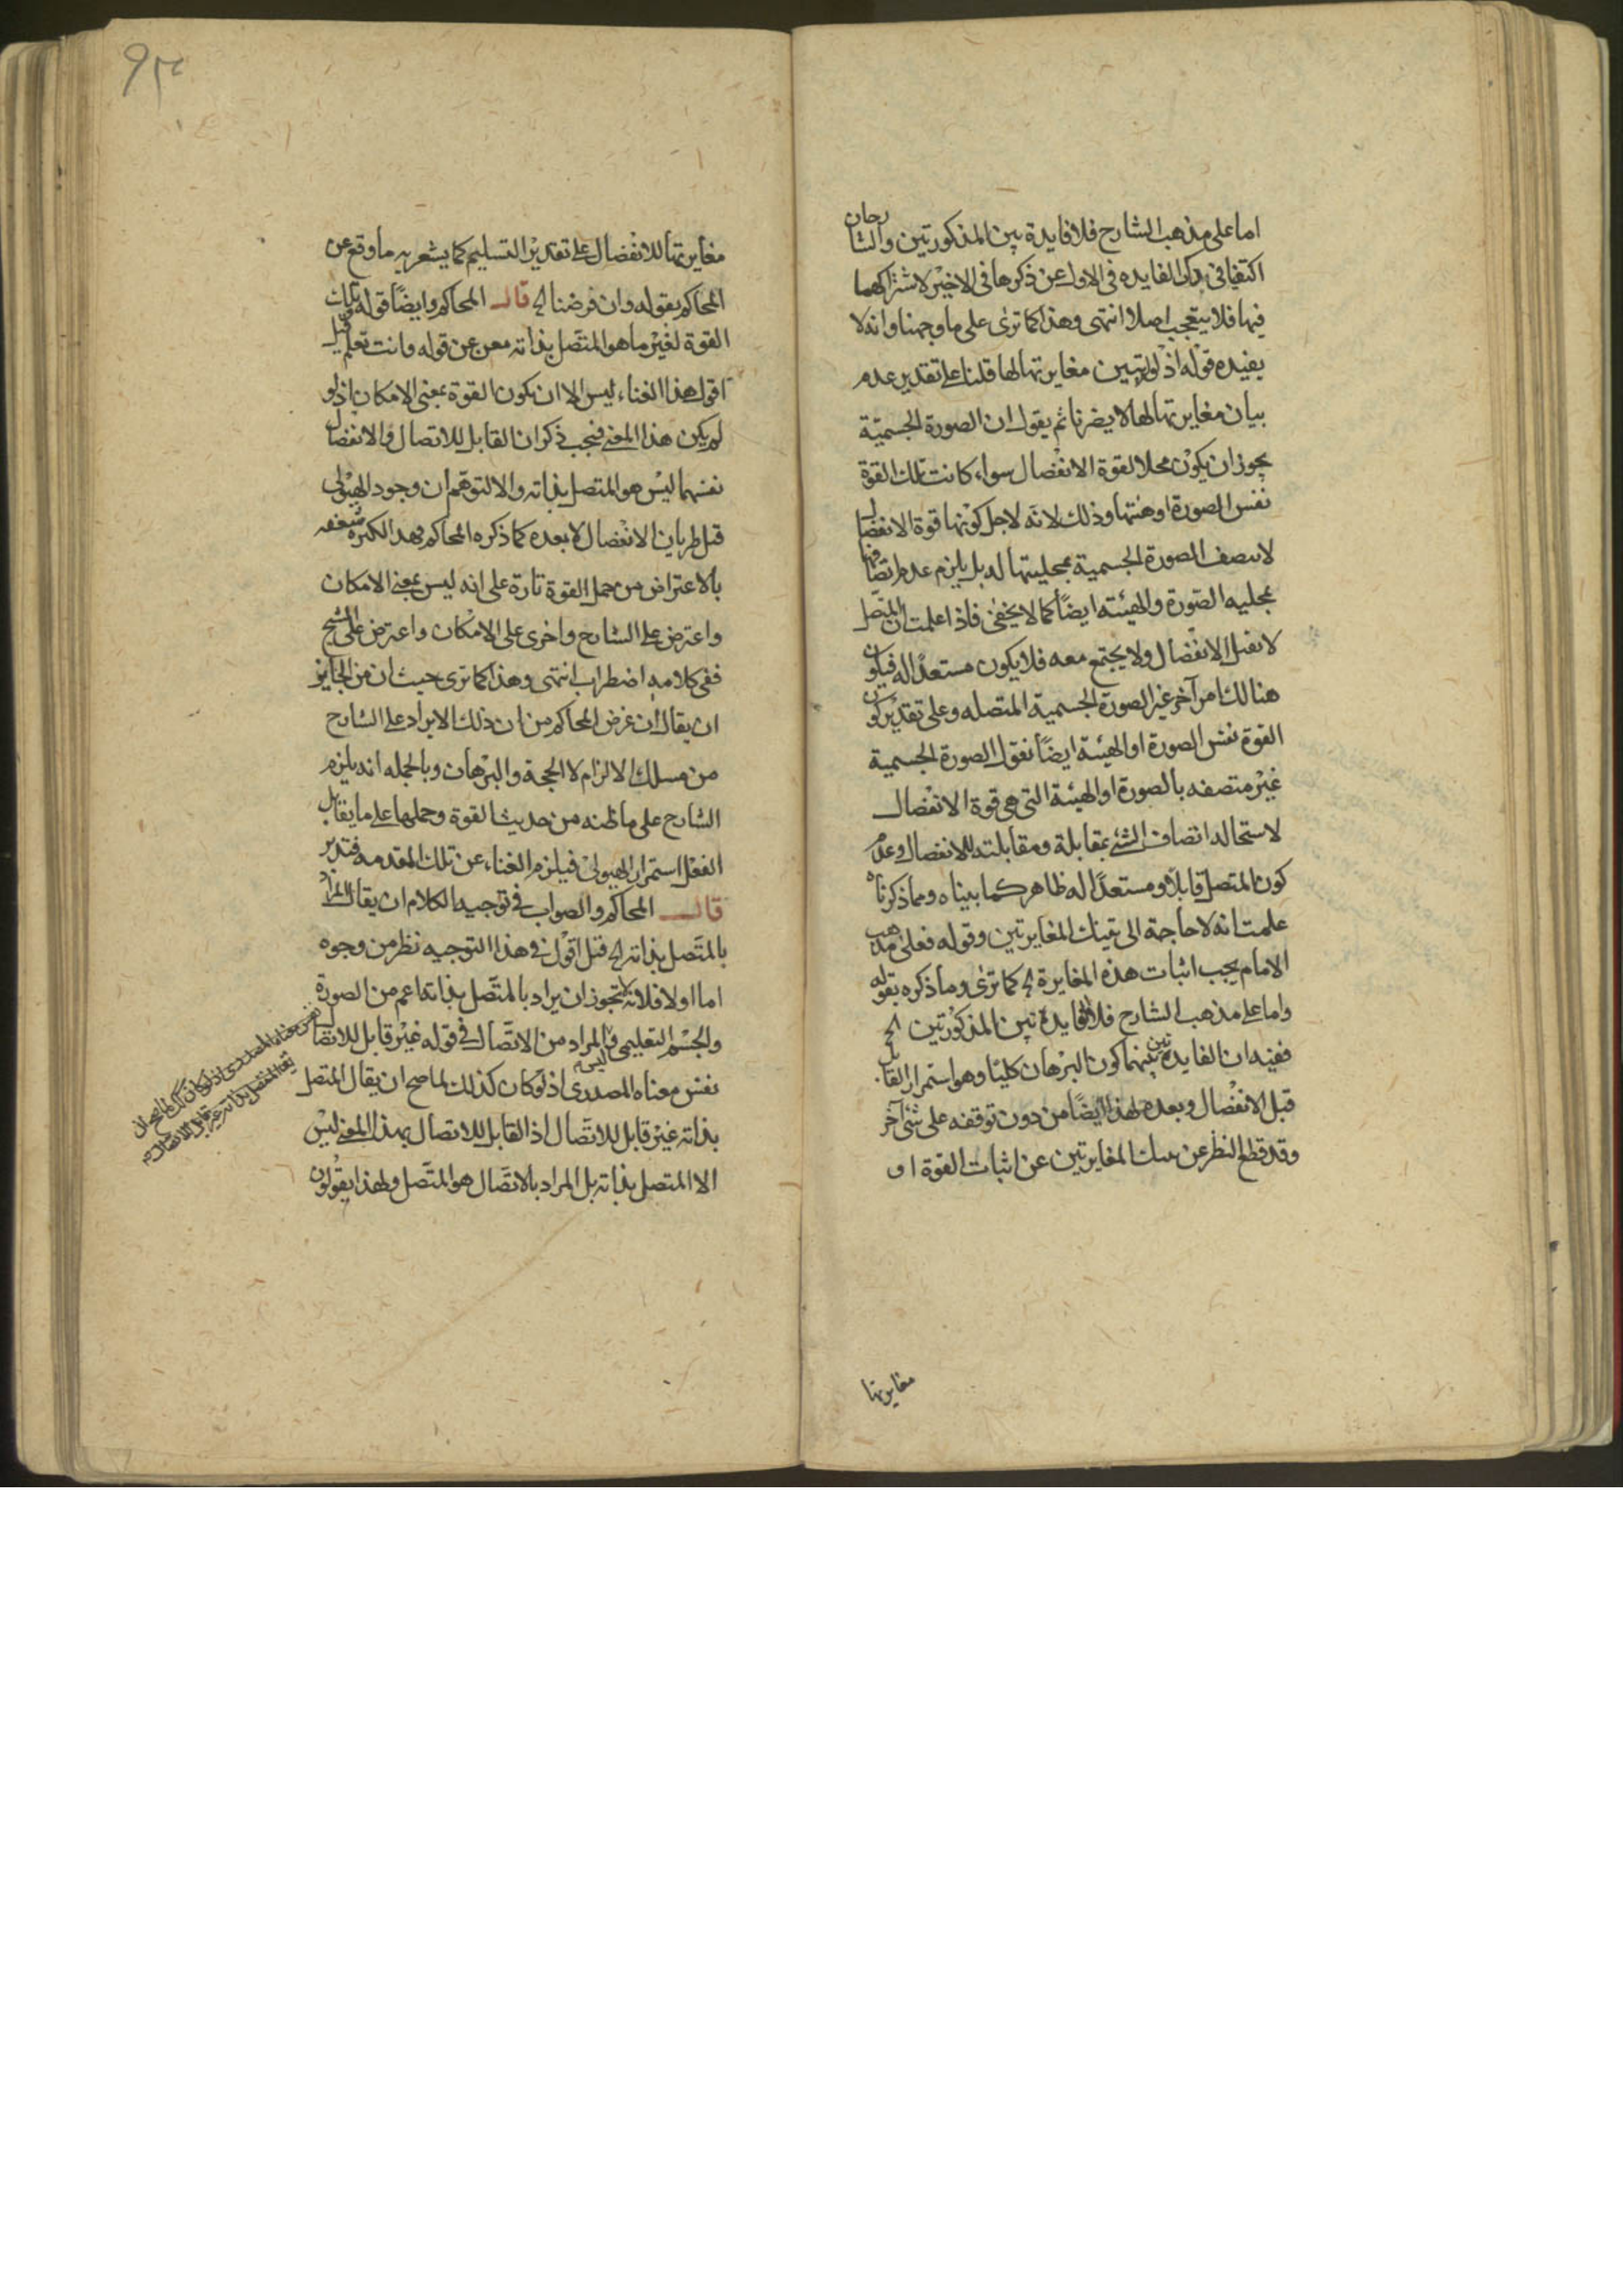 اما على مذهب الشارح فلا فايدة بين المذكورتين والشارحان
اكتفيا فى ذكر الفايده فى الاول عن ذكرها فى الاخير لاشتراكهما
فيها فلا يتعجب اصلا انتهى وهذا كما ترى على ما وجهنا وانه لا
يفيده قوله اذ لو تبين مغايرتها لها قلنا على تقدير عدم
بيان مغايرتها لها لا يضرنا ثم يقول ان الصورة الجسميّة
يجوز ان يكون محلا لقوة الانفصال سواء كانت تلك القوة
نفس الصورة او هيئتها وذلك لانه لاجل كونها قوة الانفصال
لا يتصف الصورة الجسمية بمحليتها له بل يلزم عدم اتصافها
بمحليه الصورة والهيئته ايضًا كما لا يخفى فاذا علمت ان المتصل
لا يقبل الانفصال ولا يجتمع معه فلا يكون مستعدًا له فيكون
هنالك امر آخر غير الصورة الجسمية المتصله وعلى تقدير كون
القوة نفس الصورة او الهيئة ايضًا نقول الصورة الجسمية
غير متصفه بالصورة او الهيئة التى هى قوة الانفصال
لاستحاله اتصاف الشئ بمقابلة ومقابلته للانفصال وعدم
كون المتصل قابلا ومستعدًا له ظاهر كما بيناه ومما ذكرناه
علمت انه لا حاجة الى تينك المغايرتين وقوله فعلى مذهب
الامام يجب اثبات هذه المغايرة الخ كما ترى وما ذكره بقوله
واما على مذهب الشارح فلا فايدة بين المذكورتين الخ
ففيه ان الفايدة بينهما كون البرهان كليًا وهو استمرار القابل
قبل الانفصال وبعده لهذا ايضًا من دون توقفه على شئ آخر
وقد قطع النظر عن تينك المغايرتين عن اثبات القوة او
مغايرتها
٩٣
مغايرتها للانفصال على تقدير التسليم كما يشعر به ما وقع عن
المحاكم بقوله وان فرضنا الخ قال المحاكم وايضًا قوله
القوة لغير ما هو المتصل بذاته مغن عن قوله وانت تعلم قيل
اقول هذا الغناء ليس الا ان يكون القوة بمعنى الامكان اذ لو
لم يكن هذا المعنى فيجب ذكر ان القابل للاتصال والانفصال
نفسهما ليس هو المتصل بذاته والا لتوهم ان وجود الهيولى
قبل طريان الانفصال لا بعده كما ذكره المحاكم
بالاعتراض من حمل القوة تارة على انه ليس بمعنى الامكان
واعترض على الشارح واخرى على الامكان واعترض على الشيخ
ففى كلامه اضطراب انتهى وهذا كما ترى حيث ان من الجايز
ان يقال ان غرض المحاكم من ان ذلك الايراد على الشارح
من مسلك الالزام لا الحجة والبرهان وبالجمله انه يلزم
الشارح على ما ظنه من حديث القوة وحملها على ما يقابل
الفعل استمرار الهيولى فيلزم الغناء عن تلك المقدمه فتدبر
قال المحاكم والصواب فى توجيه الكلام ان يقال المراد
بالمتصل بذاته الخ قيل اقول فى هذا التوجيه نظر من وجوه
اما اولا فلانه لا يجوز ان يراد بالمتصل بذاته اعم من الصورة
والجسم التعليمى فالمراد من الاتصال فى قوله غير قابل للاتصال ليس
نفس معناه المصدرى اذ لو كان كذلك لما صح ان يقال المتصل
بذاته غير قابل للاتصال اذ القابل للاتصال بهذا المعنى ليس
الا المتصل بذاته بل المراد بالاتصال هو المتصل ولهذا يقولون
نفس معناه المصدرى اذ لو كان كذلك لما صح ان
يقال المتصل بذاته غير قابل للاتصال